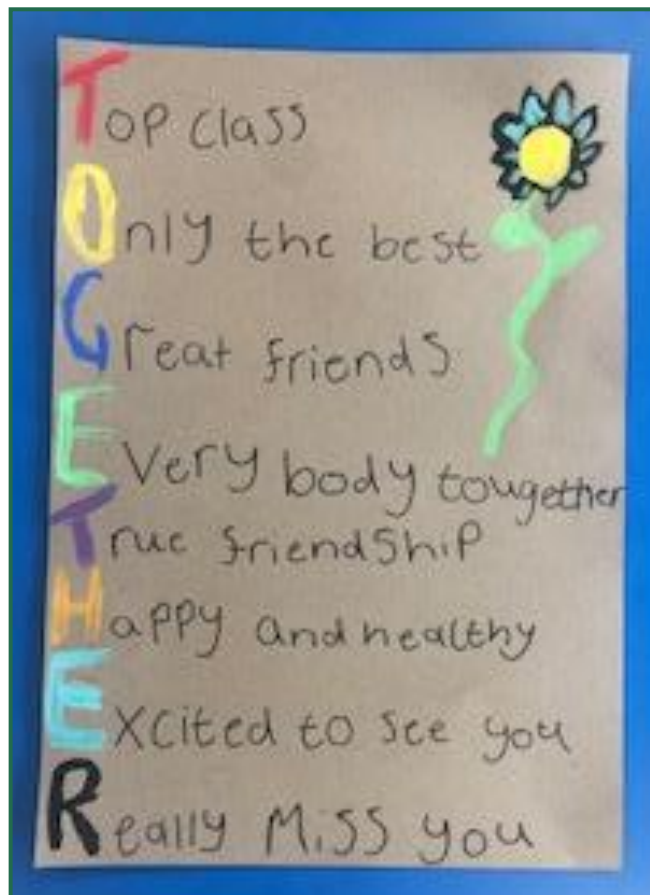 Top class
Only the best
Great friends
Every body tougether
True friendship
Happy and healthy
Excited to see you
Really Miss you